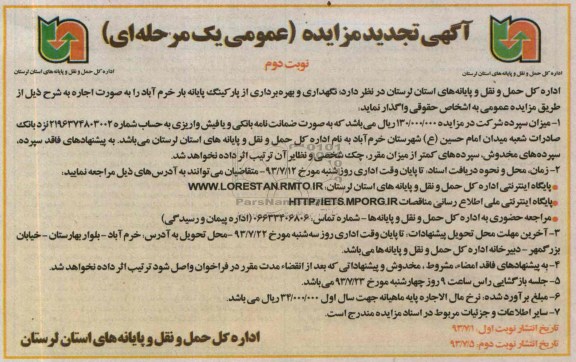 آگهی تجدید مزایده (عمومی یک مرحله‌ای)
نوبت دوم
اداره کل حمل و نقل و پایانه های استان لرستان
اداره کل حمل و نقل و پایانه های استان لرستان
اداره کل حمل و نقل و پایانه‌های استان لرستان در نظر دارد؛ نگهداری و بهره‌برداری از پارکینگ پایانه بار خرم آباد را به صورت اجاره به شرح ذیل از
طریق مزایده عمومی به اشخاص حقوقی واگذار نماید.
۱- میزان سپرده شرکت در مزایده ۱۳۰/۰۰۰/۰۰۰ ریال می‌باشد که به صورت ضمانت نامه بانکی و یا فیش واریزی به حساب شماره ۲۱۹۶۳۷۴۸۰۳۰۰۲ نزد بانک
صادرات شعبه میدان امام حسین (ع) شهرستان خرم‌آباد به نام اداره کل حمل و نقل و پایانه های استان لرستان می‌باشد. به پیشنهادهای فاقد سپرده،
سپرده‌های مخدوش، سپرده‌های کمتر از میزان مقرر، چک شخصی و نظایر آن ترتیب اثر داده نخواهد شد.
۲- زمان، محل و نحوه دریافت اسناد، تا پایان وقت اداری روز شنبه مورخ ۹۳/۷/۱۲- متقاضیان می‌توانند به آدرس‌های ذیل مراجعه نمایند:
پایگاه اینترنتی اداره کل حمل و نقل و پایانه های استان لرستان، WWW.LORESTAN.RMTO.IR
پایگاه اینترنتی ملی اطلاع رسانی مناقصات HTTP/IETS.MPORG.IR
مراجعه حضوری به اداره کل حمل و نقل و پایانه‌ها - شماره تماس: ۰۶۶۳۳۴۰۶۸۰۶ (اداره پیمان و رسیدگی)
۳- آخرین مهلت محل تحویل پیشنهادات، تا پایان وقت اداری روز سه‌شنبه مورخ ۹۳/۷/۲۲ -محل تحویل به آدرس، خرم آباد - بلوار بهارستان - خیابان
بزرگمهر - دبیرخانه اداره کل حمل و نقل و پایانه‌ها می‌باشد.
۴- به پیشنهادهای فاقد امضاء، مشروط، مخدوش و پیشنهاداتی که بعد از انقضاء مدت مقرر در فراخوان واصل شود ترتیب اثر داده نخواهد شد.
۵- جلسه بازگشایی راس ساعت ۹ روز چهارشنبه مورخ ۹۳/۷/۲۳ می‌باشد.
۶- مبلغ برآورد شده، نرخ مال الاجاره پایه ماهیانه جهت سال اول ۳۴/۰۰۰/۰۰۰ ریال می باشد.
۷- سایر اطلاعات و جزئیات مربوط در اسناد مزایده مندرج است.
تاریخ انتشار نوبت اول: ۹۳/۷/۱
تاریخ انتشار نوبت دوم: ۹۳/۷/۵
اداره کل حمل و نقل و پایانه های استان لرستان